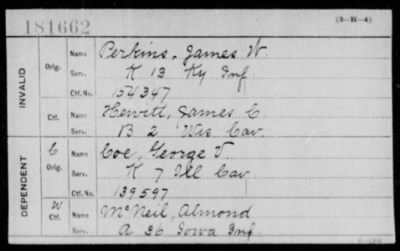 181662
(3-III-4)
INVALID
Orig.
Name Perkins, James W.
Serv. K 13 Ky Inf
Ctf. No. 154347
Ctf.
Name Hewitt, James C.
Serv. B 2 Wis Cav.
DEPENDENT
C
Orig.
Name Coe, George V.
Serv. K 7 Ill Cav.
Ctf. No. 139597
W
Ctf.
Name McNeil, Almond
Serv. A 36 Iowa Inf.